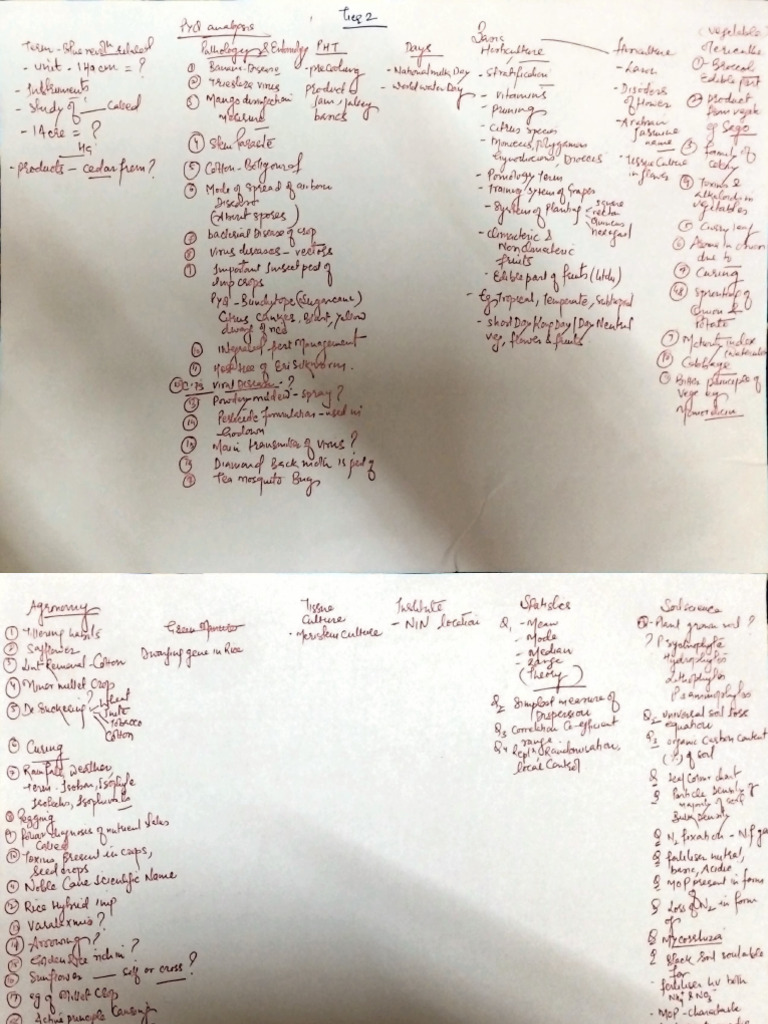 Tier 2
PYQ analysis
Term - Blue revolth related
- unit - 1 Ha cm = ?
- Instruments
- Study of ___ called
- 1 Acre = ?
Ha
- products - cedar from?
Pathology & Entomology
① Banana - Disease
② Tristeza virus
③ Mango
measure
④ Stem parasite
⑤ Cotton - Bollguard
⑥ Mode of spread of air borne
Disease
(About spores)
⑦ bacterial Disease of crop
⑧ Virus diseases - vectors
⑨ Important Insect pest of
imp crops
PYQ - Bunchytope (Sugarcane)
Citrus canker, Blast, Yellow
⑩ Integrated pest Management
⑪ Host tree of Eri Silkworm.
Viral Disease - ?
⑬ Powdery mildew - spray ?
⑭ Pesticide formulation - used in
Godown
⑮ Main transmitter of virus ?
Diamond Back moth is pest of
Tea mosquito Bug
PHT
- precooling
Product
Jam / Jelly
basics
Days
- National milk Day
- World water Day
Basic
Horticulture
- Stratification
- Vitamins
- Pruning
- Citrus species
- Monoecious, Polygamous
Gynodioecious, Dioecious
- Pomology Term
- Training System of Grapes
- System of Planting
square
rectan
Quincunx
hexagonal
- Climacteric &
Nonclimacteric
fruits
- Edible part of fruits (litchi)
- Eg Tropical, Temperate, Subtropical
- Short Day / Long Day / Day Neutral
veg, flower & fruits.
floriculture
- Lawn
- Disorders
of flower
- Arabian
Jasmine
name
- Tissue Culture
in flower
(Vegetable)
Olericulture
① Broccoli
Edible part
② Product
from
of Sago
③ Family of
④ Toxins &
Alkaloids in
vegetables
⑤ Curry leaf
⑥ Aroma in onion
due to
⑦ Curing
⑧ Sprouting of
Onion &
Potato
⑨ Maturity index
(Watermelon)
⑩ Cabbage
⑪ Bitter principle of
Vege by
Momordicin
Agronomy
① Tillering habits
② Safflower
③ Lint Removal - Cotton
④ Minor millet Crop
⑤ De Suckering ?
Wheat
Jute
Tobacco
Cotton
⑥ Curing
⑦ Rainfall, Weather,
term - Isobar, Isohyte
Isotachs,
⑧ Pegging
⑨ Foliar diagnosis of nutrient
called
⑩ Toxins, Present in crops,
Seed crops
⑪ Noble Cane Scientific Name
⑫ Rice Hybrid Imp
⑬ Varalaxmi ?
⑭ Arrowing ?
⑮ Golden rice rich in ?
⑯ Sunflower ___ self or cross ?
⑰ eg of Millet Crop
Active principle
Green Manure
Dwarfing gene in Rice
Tissue
Culture
- Meristem Culture
Institute
- NIN location
Statistics
Q1 - Mean
- Mode
- Median
- Range
(Theory)
Q2 Simplest measure of
Dispersion
Q3 Correlation Co-efficient
range
Q4 Repln, Randomisation,
local Control
Soil science
- Plant grown soil ?
? Psychrophyte
Hydrophytes
Lithophytes
Psammophytes
Q2 universal soil loss
equation
Q3 organic Carbon Content
(%) of soil
Q Leaf Colour chart
Q Particle density &
of soil
Bulk density
Q N2 fixation - Nif gene
Q fertiliser neutral,
basic, Acidic
Q MOP present in form
Q Loss of N2 in form
of
Q Mycorrhiza
Q Black Soil suitable
for
- fertiliser hv both
NH4+ & NO3-
- MOP -